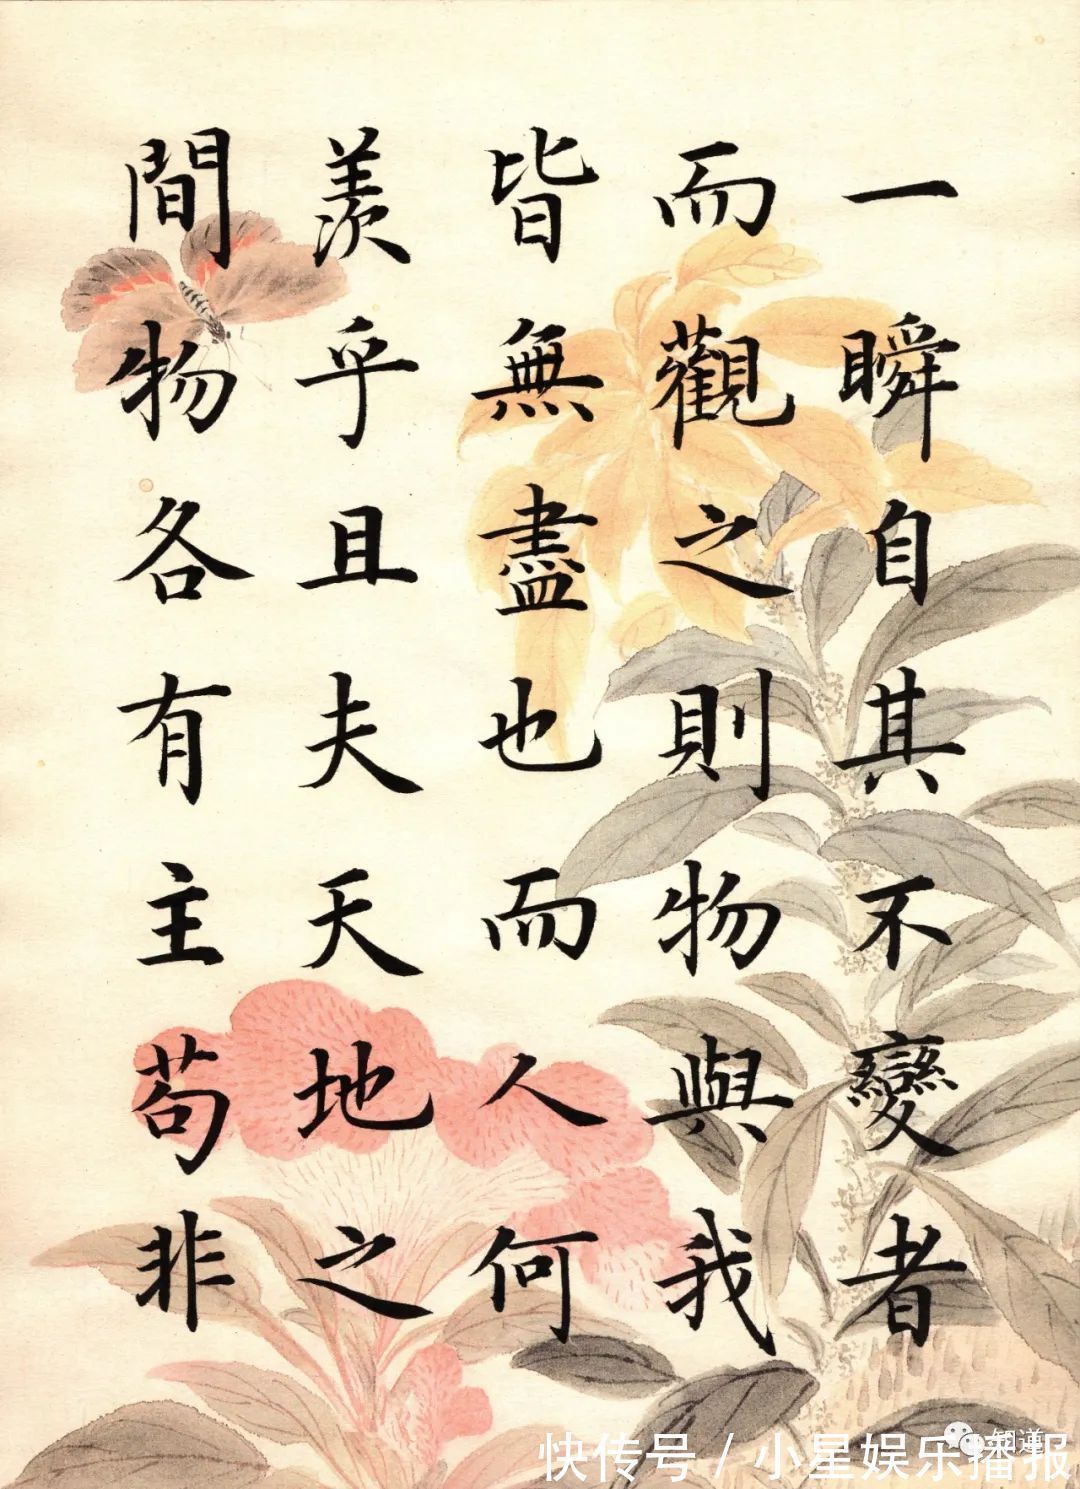 一瞬自其不變者
而觀之則物與我
皆無盡也而人何
羨乎且夫天地之
間物各有主苟非
知道
快传号 / 小星娱乐播报